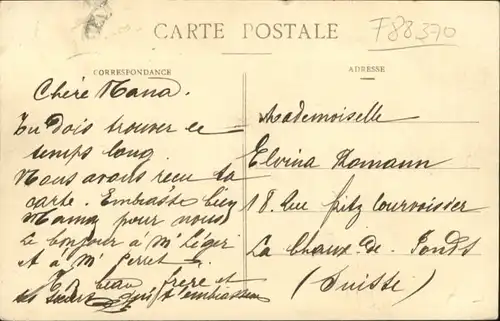 CARTE POSTALE
F88370
CORRESPONDANCE
ADRESSE
Chère Nana.
Tu dois trouver le
temps long.
Nous avons reçu ta
carte. Embrasse bien
Mama pour nous
Le bonjour à Mr Léger
et à Mr Perret.
Ton beau frère et
tes sœurs qui t'embrassen
Mademoiselle
Elvina Homann
18. Rue fritz Courvoisier
La Chaux. de. Fonds
(Suisse)